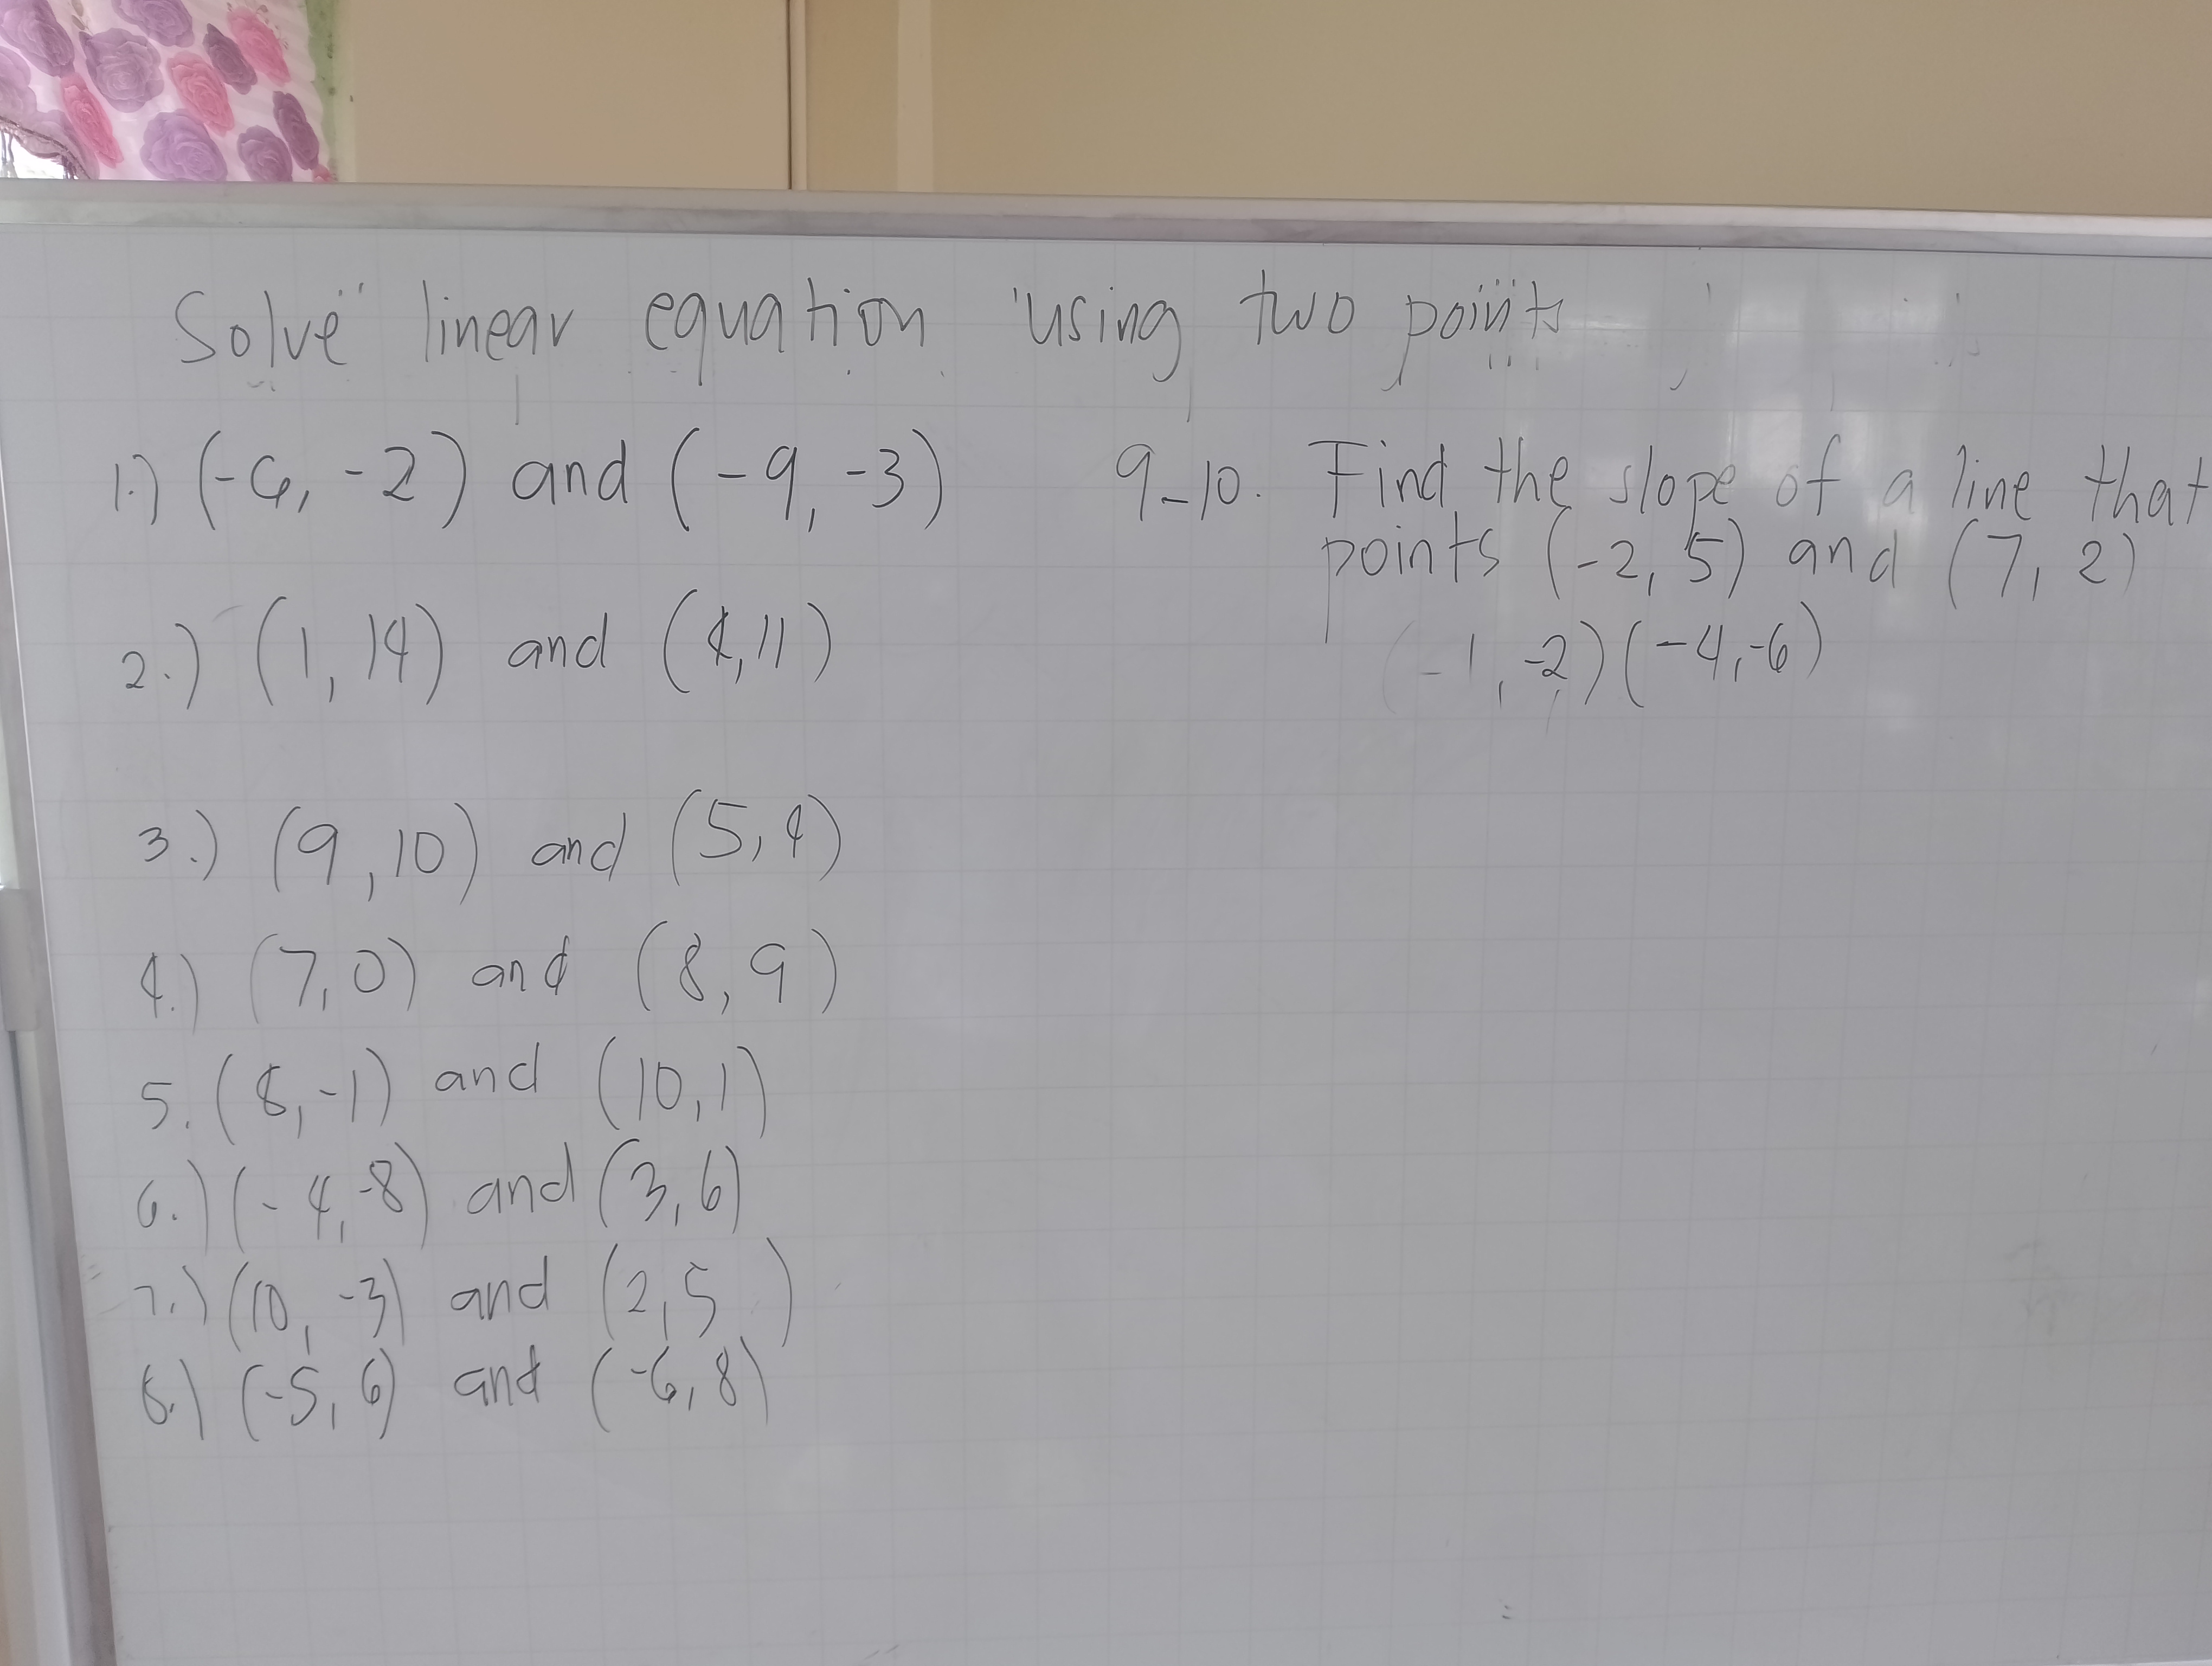 Solve linear equation using two points
1.) (-6, -2) and (-9, -3)
2.) (1, 14) and (4, 11)
3.) (9, 10) and (5, 4)
4.) (7, 0) and (8, 9)
5. (8, -1) and (10, 1)
6.) (-4, -8) and (3, 6)
7.) (10, -3) and (2, 5 )
8.) (-5, 6) and (-6, 8)
9-10. Find the slope of a line that
points (-2, 5) and (7, 2)
(-1, -2) (-4, -6)